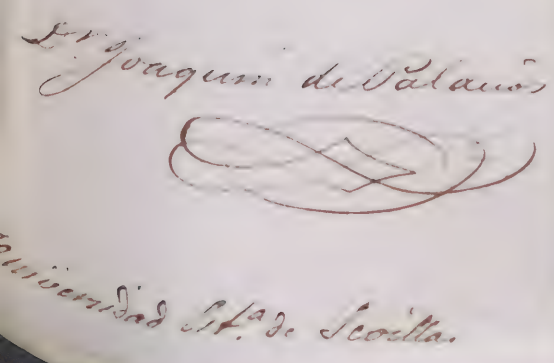 Dr. Joaquin de Palacios
Universidad Lit.ª de Sevilla.